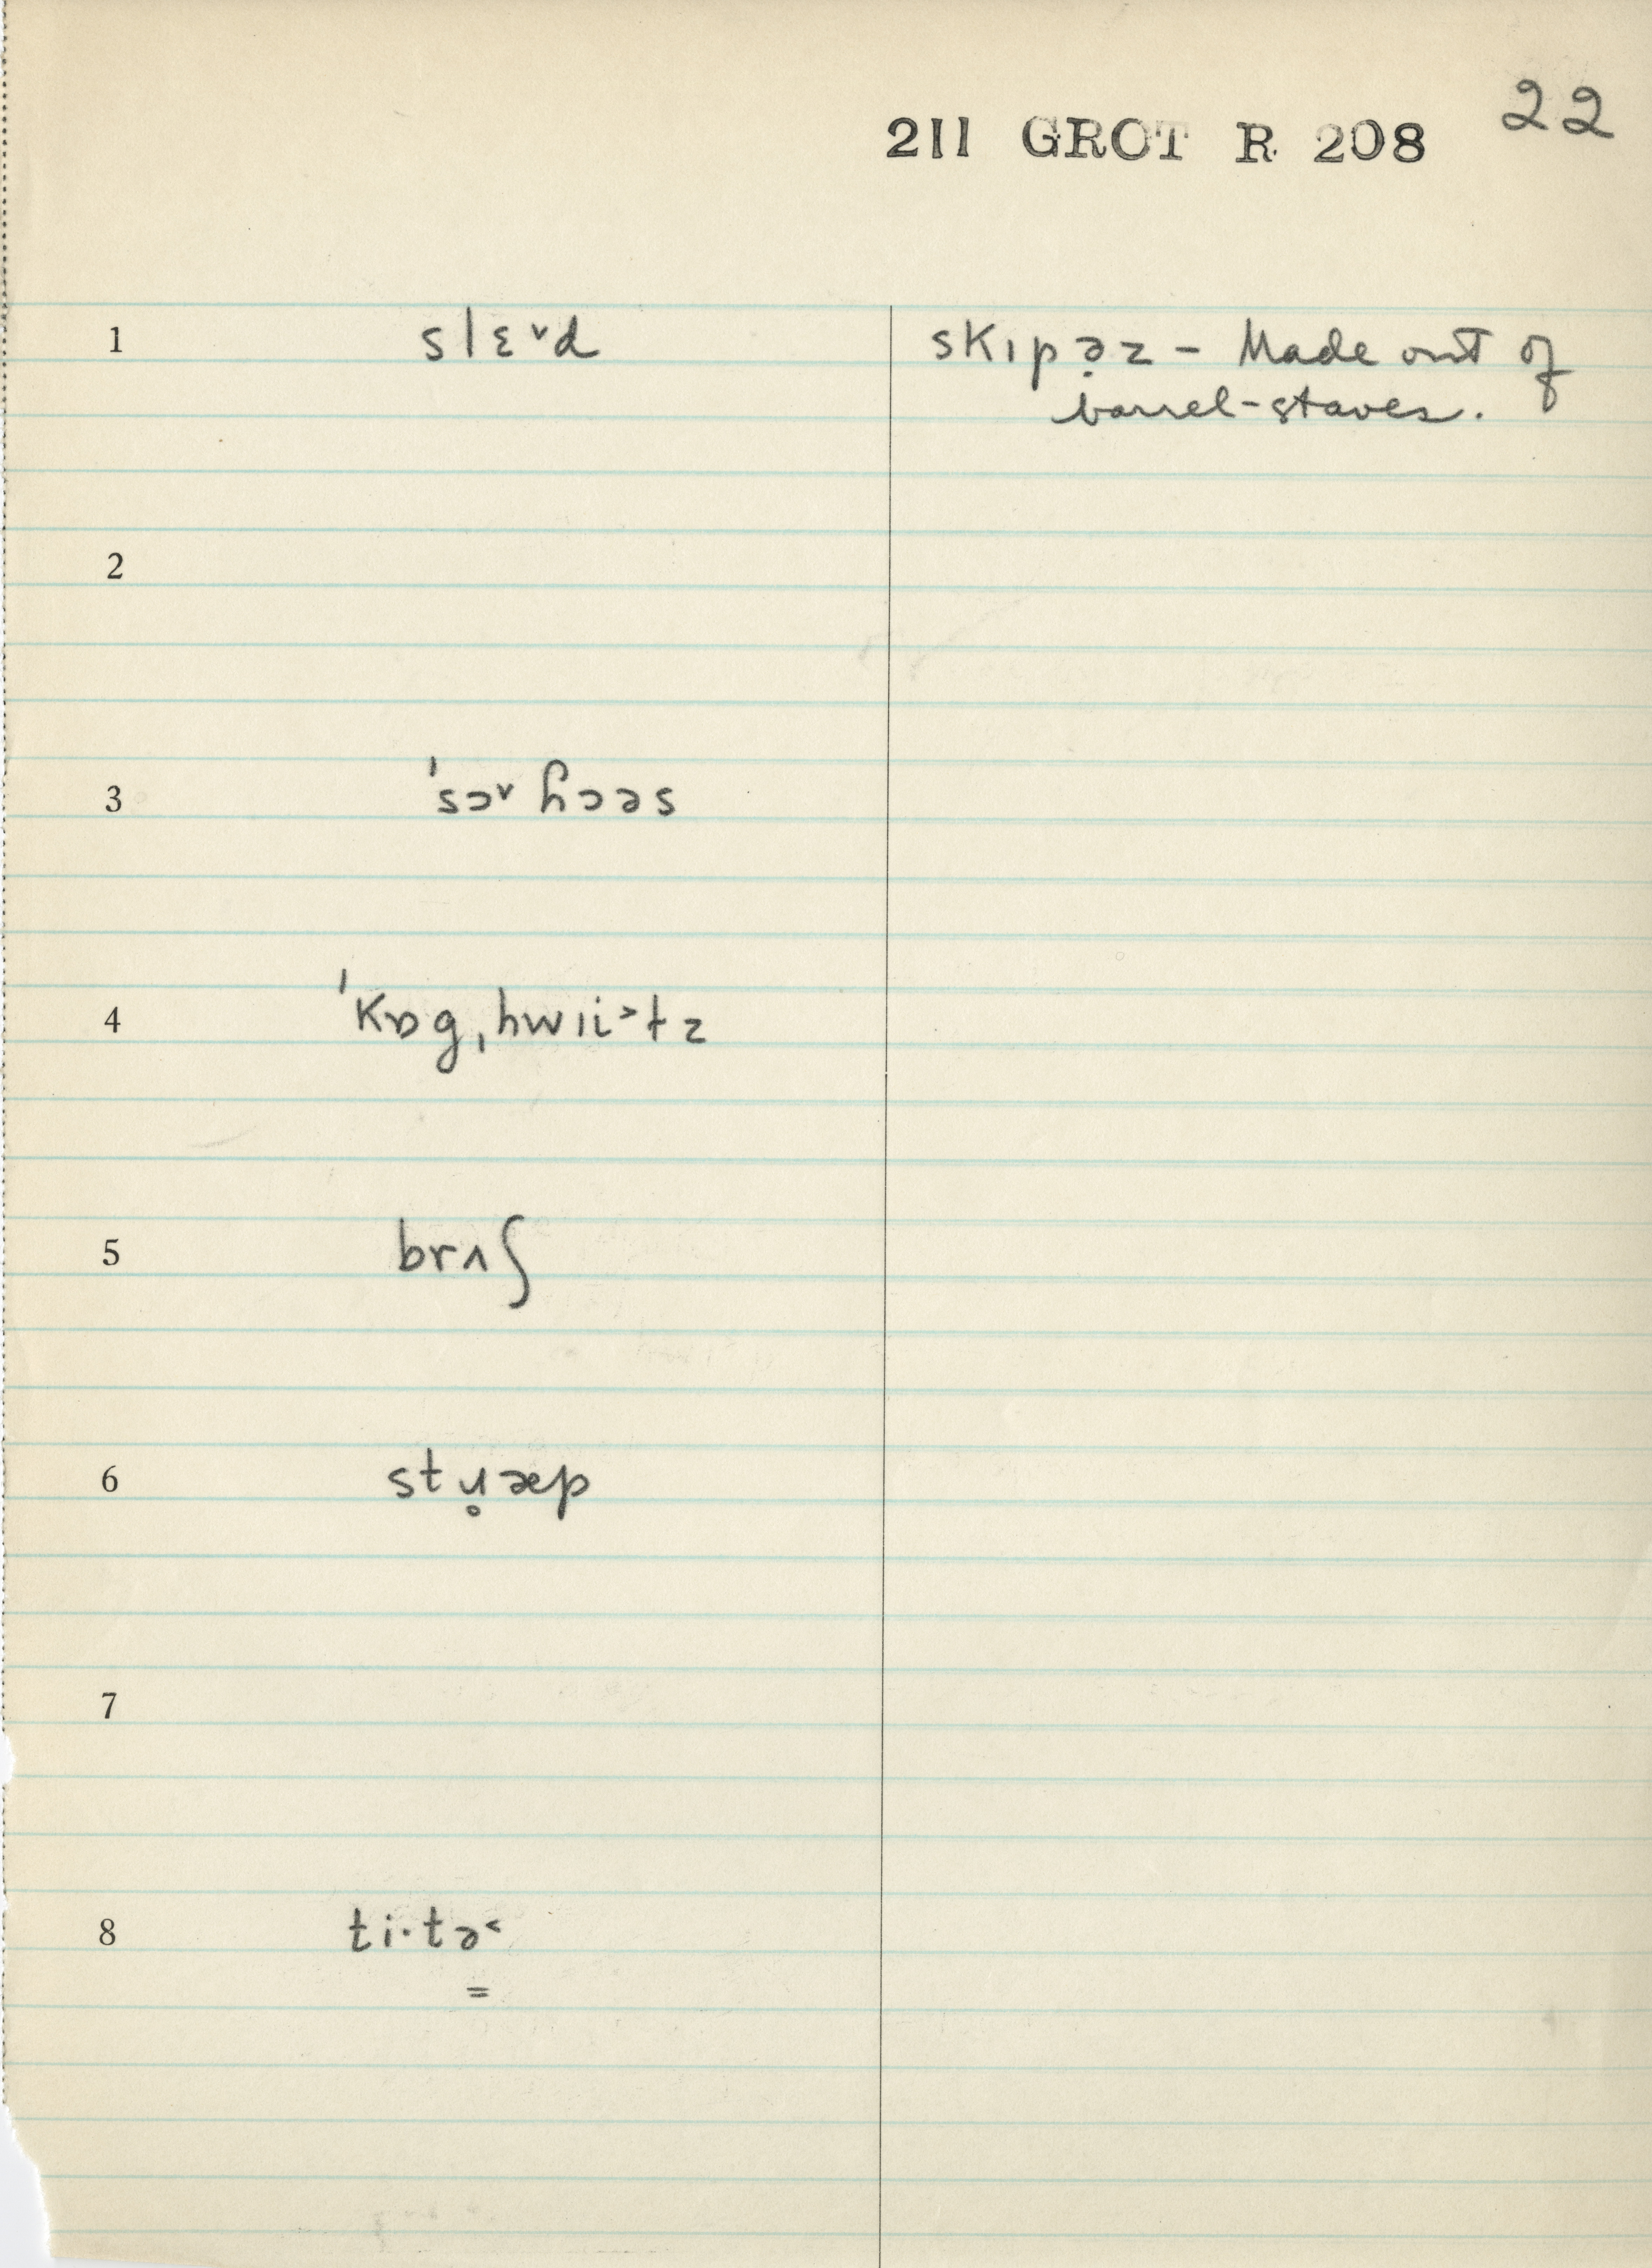 22
211 GROT R 208
1 slɛ˅d skɪpə̣z – Made out of
barrel-staves.
2
3 ˈsɔ˅ ɦɔəs
4 ˈkɒgˌhwɪi˃tz
5 brʌʃ
6 stɹ̥æp
7
8 ti·tə˂
=